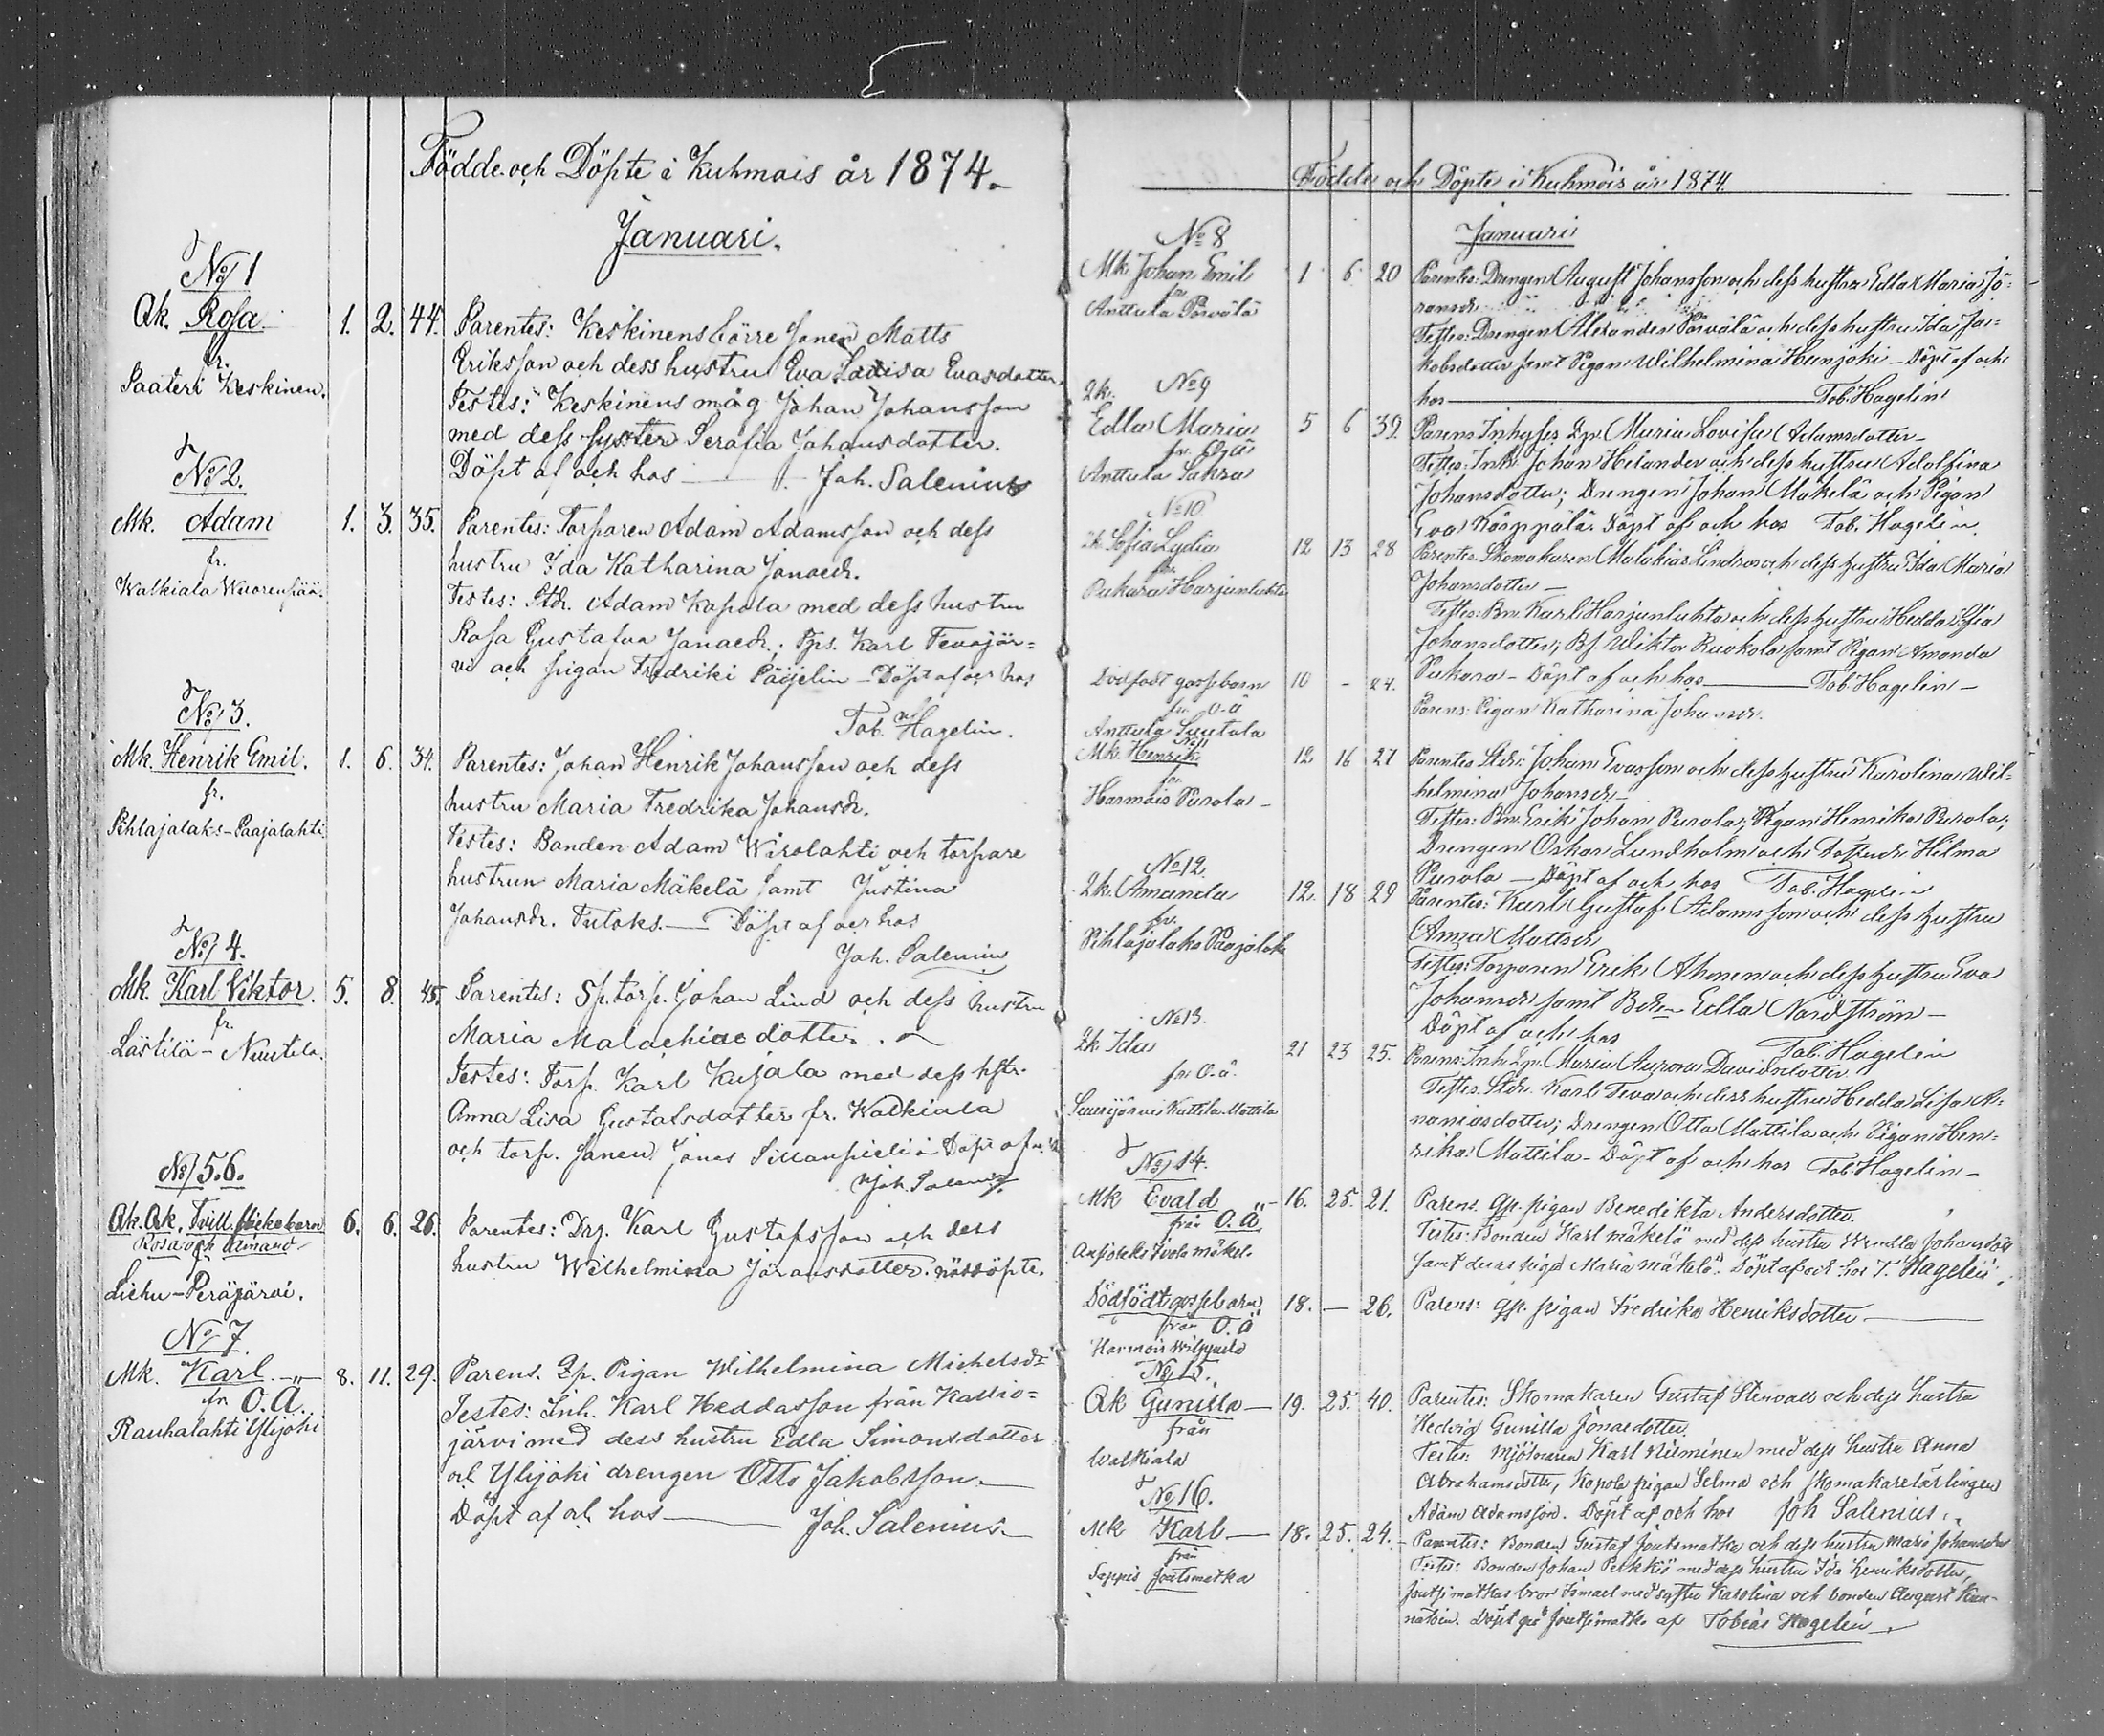 Födde och Döpte i Kuhmois år 1874.
Januari.
No 1
Qk. Rosa
fr.
Paateri Keskinen.
1. 2. 44.
Parentes: Keskinens Görre Matts
Eriksson och dess hustru Eva Lovisa Evasdotter
Testes: Keskinens måg Johan Johansson
med dess syster Serafia Johansdotter.
Döpt af och hos — Joh. Salenius
No 2.
Mk. Adam
fr.
Walkiala Wuorenpää.
1. 3. 35.
Parentes: Torparen Adam Adamsson och dess
hustru Ida Katharina Jonaedr.
Testes: Stdr. Adam Kapola med dess hustru
Rosa Gustafva Jonaedr.; Karl Tevajär=
vi och pigan Fredriki Päijelin — Döpt af och hos
Tob. Hagelin.
No 3.
Mk. Henrik Emil.
fr.
Pihlajalaks-Paajalahti
1. 6. 34.
Parentes: Johan Henrik Johansson och dess
hustru Maria Fredrika Johansdr.
Testes: Bonden Adam Wirolahti och torpare
hustrun Maria Mäkelä samt Justina
Johansdr. — Döpt af och hos
Joh. Salenius
No 4.
Mk. Karl Viktor.
fr.
Lästilä - Nuutila.
5. 8. 45.
Parentes: Sp. torp. Johan Lind och dess hustru
Maria Malachiaedotter.
Testes: Torp. Karl Kujala med dess hstr.
Anna Lisa Gustafsdotter fr. Walkiala
och torp. sonen Jonas Döpt af
Joh. Salenius
No 5.6.
Qk. Qk. Tvill. flickebarn
Rosa och Amanda
fr.
Liehu-Peräjärvi.
6. 6. 26.
Parentes: Drg. Karl Gustafsson och dess
hustru Wilhelmina Göransdotter. nöddöpte.
No 7.
Mk. Karl —
fr O.Ä.
Rauhalahti Ylijoki
8. 11. 29.
Parens. Lp. Pigan Wilhelmina Michelsdr
Testes: Inh. Karl Heddasson från Kallio=
järvi med dess hustru Edla Simonsdotter
och Ylijoki drengen Otto Jakobsson —
Döpt af och hos — Joh. Salenius —
Födde och Döpte i Kuhmois år 1874.
Januari
No 8
Mk. Johan Emil
fr.
Anttula Pärvälä
1 6 20
Parentes: Drengen August Johansson och dess hustru Edla Maria Jö=
ransdr.
Testes: Drengen Alexander Pärvälä och dess hustru Ida Ja=
kobsdotter samt Pigan Wilhelmina Hunjoki — Döpt af och
hos — Tob. Hagelin
No 9
Qk.
Edla Maria
fr. O.Ä
Anttula Sakra
5 6 39.
Parens Inhyses Lp. Maria Lovisa Adamsdotter —
Testes: Inh. Johan Helander och dess hustru Adolfina
Johansdotter; Drengen Johan Mäkelä och Pigan
Eva Kärppälä. Döpt af och hos Tob. Hagelin.
No 10
Qk Sofia Lydia
fr.
Pukara Harjunluhta
12 13 28
Parentes. Skomakaren Malakias Lindroos och dess hustru Ida Maria
Johansdotter —
Testes: Bn. Karl Harjunluhta och dess hustru Hedda Sofia
Johansdotter; Bs. Wiktor Ruokola samt Pigan Amanda
Pukara — Döpt af och hos — Tob. Hagelin —
Dödfödt gossebarn
fr. O.Ä
Anttula Suutala
10 - 24.
Parens: Pigan Katharina Johansdr.
No 11
Mk. Henrik
fr.
Harmois Purola —
12 16 27
Parentes Stdr. Johan Evasson och dess hustru Karolina Wil=
helmina Johansdr. —
Testes: Bn. Erik Johan Purola; Pigan Henrika Purola;
Drengen Oskar Lundholm och Hilma
Purola — Döpt af och hos Tob. Hagelin
No 12.
Qk. Amanda
fr.
Pihlajalaks Paajalaht
12. 18 29
Parentes: Karl Gustaf Adamsson och dess hustru
Anna Mattsdr.
Testes: Torparen Erik Ahonen och dess hustru Eva
Johansdr samt Edla Nordström —
Döpt af och hos Tob. Hagelin
No 13.
Qk. Ida
fr. O.ä.
Mattila
21 23 25.
Parens: Inh. Lp. Maria Aurora Davidsdotter.
Testes. Stdr. Karl Teva och dess hustru Hedda Lisa A=
naniasdotter; Drengen Otto Mattila och Pigan Hen=
rika Mattila — Döpt af och hos Tob. Hagelin —
No 14.
Mk Evald
från O.Ä
16. 25. 21.
Parens. Pigan Benedikta Andersdotter.
Testes: Bonden Karl Mäkelä med dess hustru Wendla Johansdr
samt deras piga Maria Mäkelä. Döpt af och hos T. Hagelin.
Dödfödt gossebarn
från O.Ä
Harmois
18. — 26.
Parens: pigan Fredrika Henriksdotter —
No 15.
Qk Gunilla —
från
Walkiala
19. 25. 40.
Parentes: Skomakaren Gustaf Stenvall och dess hustru
Hedvig Gunilla Jonaedotter.
Testes: Mjölnaren Karl Nieminen med dess hustru Anna
Abrahamsdotter, Kopola pigan Selma och skomakarelärlingen
Adam Adamsson. Döpt af och hos Joh Salenius.
No 16.
Mk Karl —
från
Sappis Joutsmatka
18. 25. 24.
Parentes: Bonden Gustaf Joutsmatka och dess hustru Maria Johansdr
Testes: Bonden Johan Perkkiö med dess hustru Ida Henriksdotter,
Joutsimatkas bror Ismael med syster Karolina och bonden August Kan-
natoin. Döpt på Joutsimatka af Tobias Hagelin.